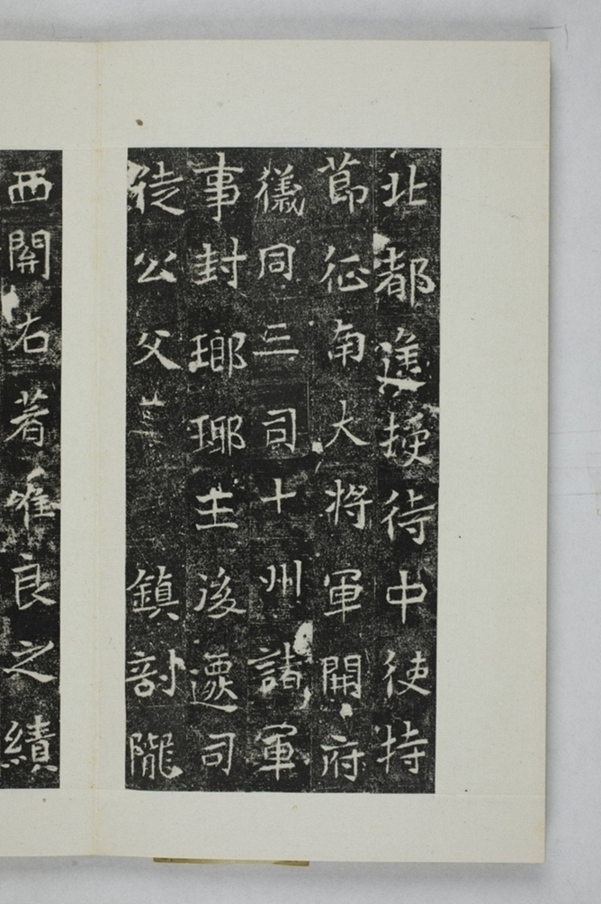 北都進授待中使持
節征南大將軍開府
儀同三司十州諸軍
事封瑯耶王後遷司
徒公父 鎮剖隴
西關右著唯良之績